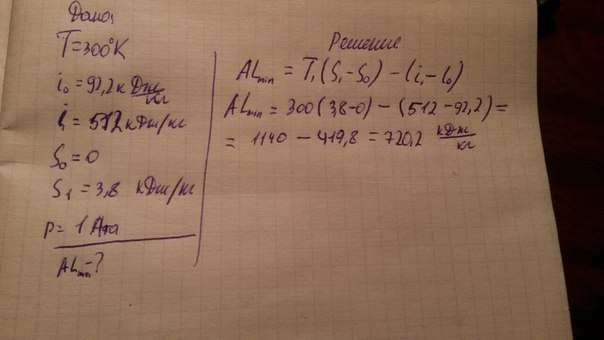 Дано:
T=300°К
i₀=92,2 кДж/кг
i₁=512 кДж/кг
S₀=0
S₁=3,8 кДж/кг
P=1 Ата
ALmin-?
Решение
ALmin = T₁(S₁-S₀) - (i₁-i₀)
ALmin = 300(3,8-0) - (512-92,2)=
= 1140 - 419,8 = 720,2 кДж/кг